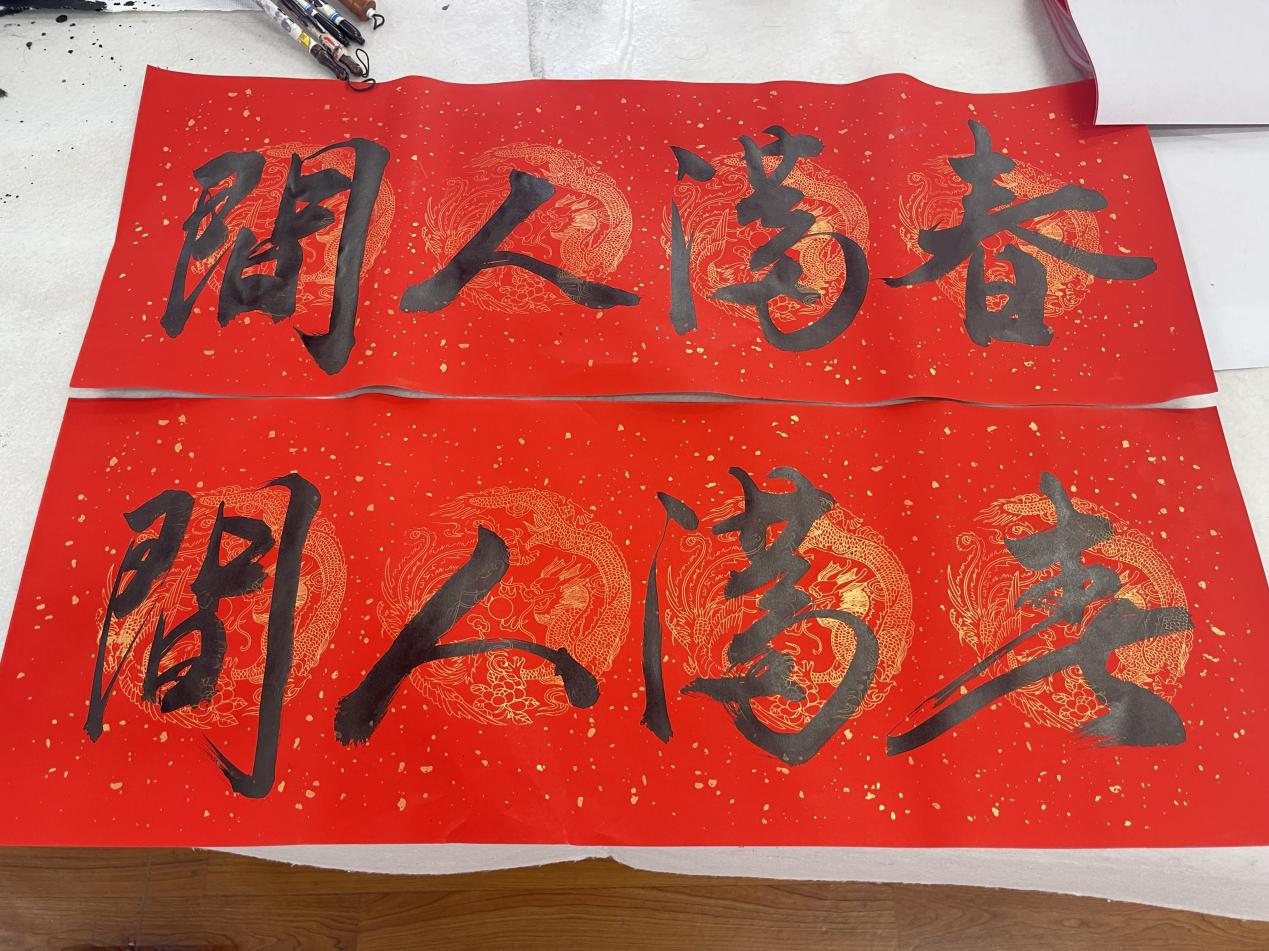 春滿人間
春滿人間